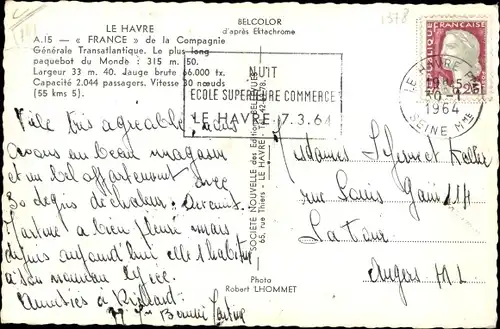 LE HAVRE
A.15 — « FRANCE » de la Compagnie
Générale Transatlantique. Le plus long
paquebot du Monde : 315 m. 50.
Largeur 33 m. 40. Jauge brute 66.000 tx.
Capacité 2.044 passagers. Vitesse 30 nœuds
(55 kms 5).
BELCOLOR
d'après Ektachrome
NUIT
ECOLE SUPERIEURE COMMERCE
LE HAVRE 7.3.64
REPUBLIQUE FRANÇAISE
0,25
LE HAVRE
1964
SEINE Mme
Ville très agréable, nous
avons un beau magasin
et un bel appartement avec
30 degrés de chaleur.
Martine a bien pleuré mais
depuis aujourd'hui elle s'habitue
à son nouveau lycée.
Amitiés à
Martine
SOCIÉTÉ NOUVELLE des Editions
65, rue Thiers - LE HAVRE
Photo
Robert LHOMMET
Mesdames Lejeune et
rue Louis Gain 114
La Tour
Angers M.L.